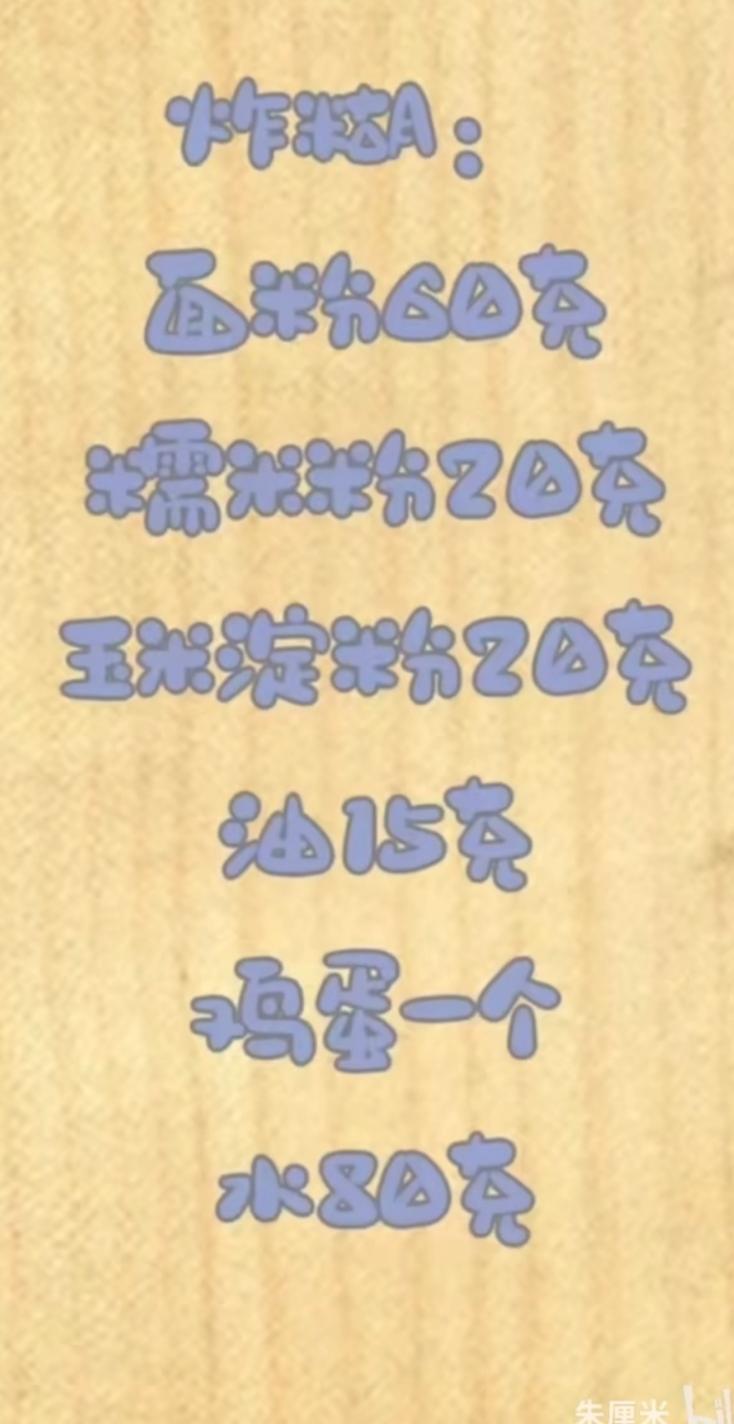 炸糊A：
面粉60克
糯米粉20克
玉米淀粉20克
油15克
鸡蛋一个
水80克
朱厘米